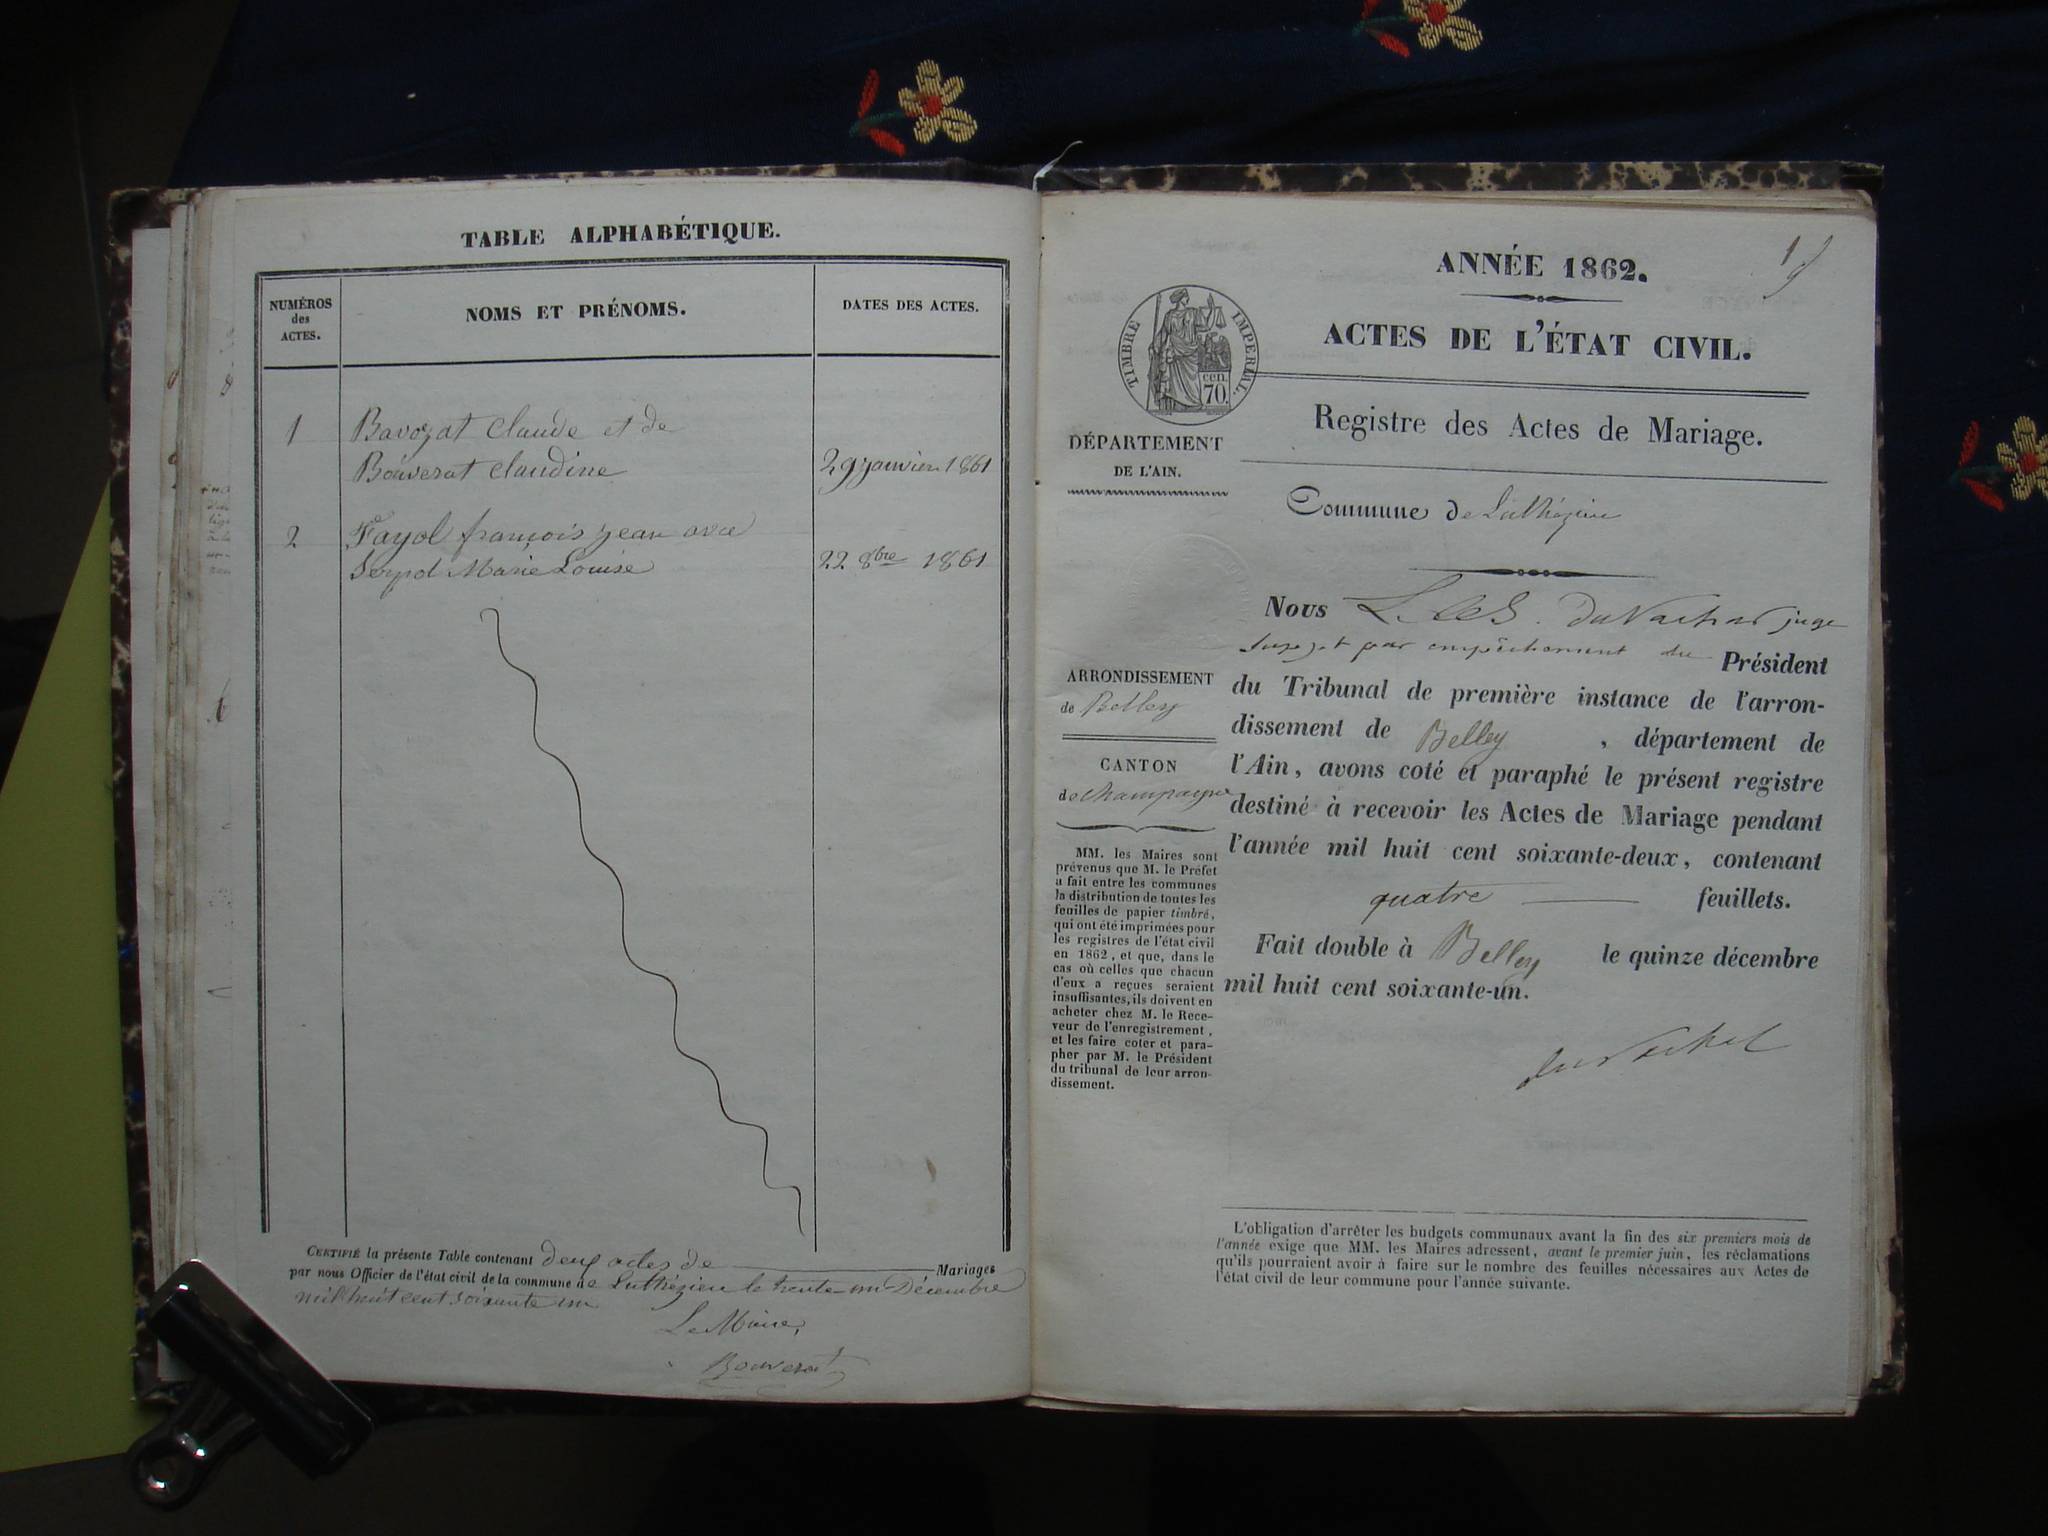 TABLE ALPHABÉTIQUE.
NUMÉROS
des
ACTES.
NOMS ET PRÉNOMS.
DATES DES ACTES.
1
Bavozat Claude et de
Bouverat Claudine
29 janvier 1861
2
Fayol françois jean avec
Marie Louise
22 8bre 1861
CERTIFIÉ la présente Table contenant deux actes de Mariages
par nous Officier de l'état civil de la commune de Luthézieu le trente-un Décembre
mil huit cent soixante un
Le Maire,
Bouverat
ANNÉE 1862.
ACTES DE L'ÉTAT CIVIL.
TIMBRE IMPERIAL.
cen.
70.
Registre des Actes de Mariage.
DÉPARTEMENT
DE L'AIN.
Commune de Luthézieu
ARRONDISSEMENT
de Belley
CANTON
de Champagne
MM. les Maires sont
prévenus que M. le Préfet
a fait entre les communes
la distribution de toutes les
feuilles de papier timbré,
qui ont été imprimées pour
les registres de l'état civil
en 1862, et que, dans le
cas où celles que chacun
d'eux a reçues seraient
insuffisantes, ils doivent en
acheter chez M. le Rece-
veur de l'enregistrement,
et les faire coter et para-
pher par M. le Président
du tribunal de leur arron-
dissement.
Nous juge
par empêchement du Président
du Tribunal de première instance de l'arron-
dissement de Belley, département de
l'Ain, avons coté et paraphé le présent registre
destiné à recevoir les Actes de Mariage pendant
l'année mil huit cent soixante-deux, contenant
quatre feuillets.
Fait double à Belley le quinze décembre
mil huit cent soixante-un.
L'obligation d'arrêter les budgets communaux avant la fin des six premiers mois de
l'année exige que MM. les Maires adressent, avant le premier juin, les réclamations
qu'ils pourraient avoir à faire sur le nombre des feuilles nécessaires aux Actes de
l'état civil de leur commune pour l'année suivante.